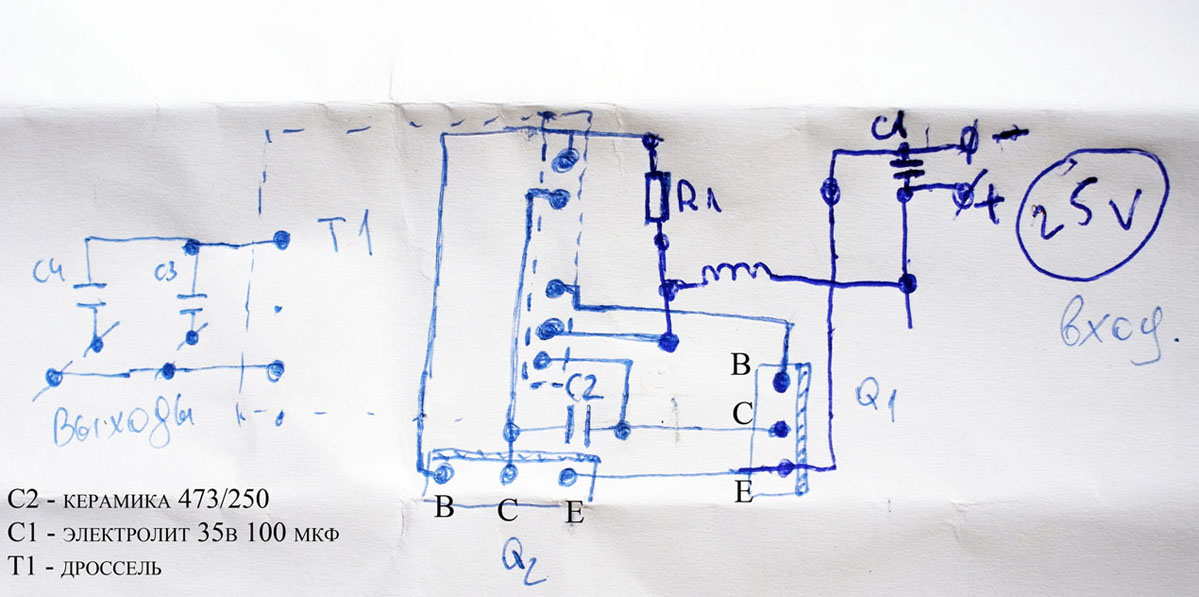 C1
−
+
25V
R1
T1
C4
C3
вход.
B
C2
Q1
C
Выходы
E
B
C
E
Q2
C2 - КЕРАМИКА 473/250
C1 - ЭЛЕКТРОЛИТ 35В 100 МКФ
T1 - ДРОССЕЛЬ